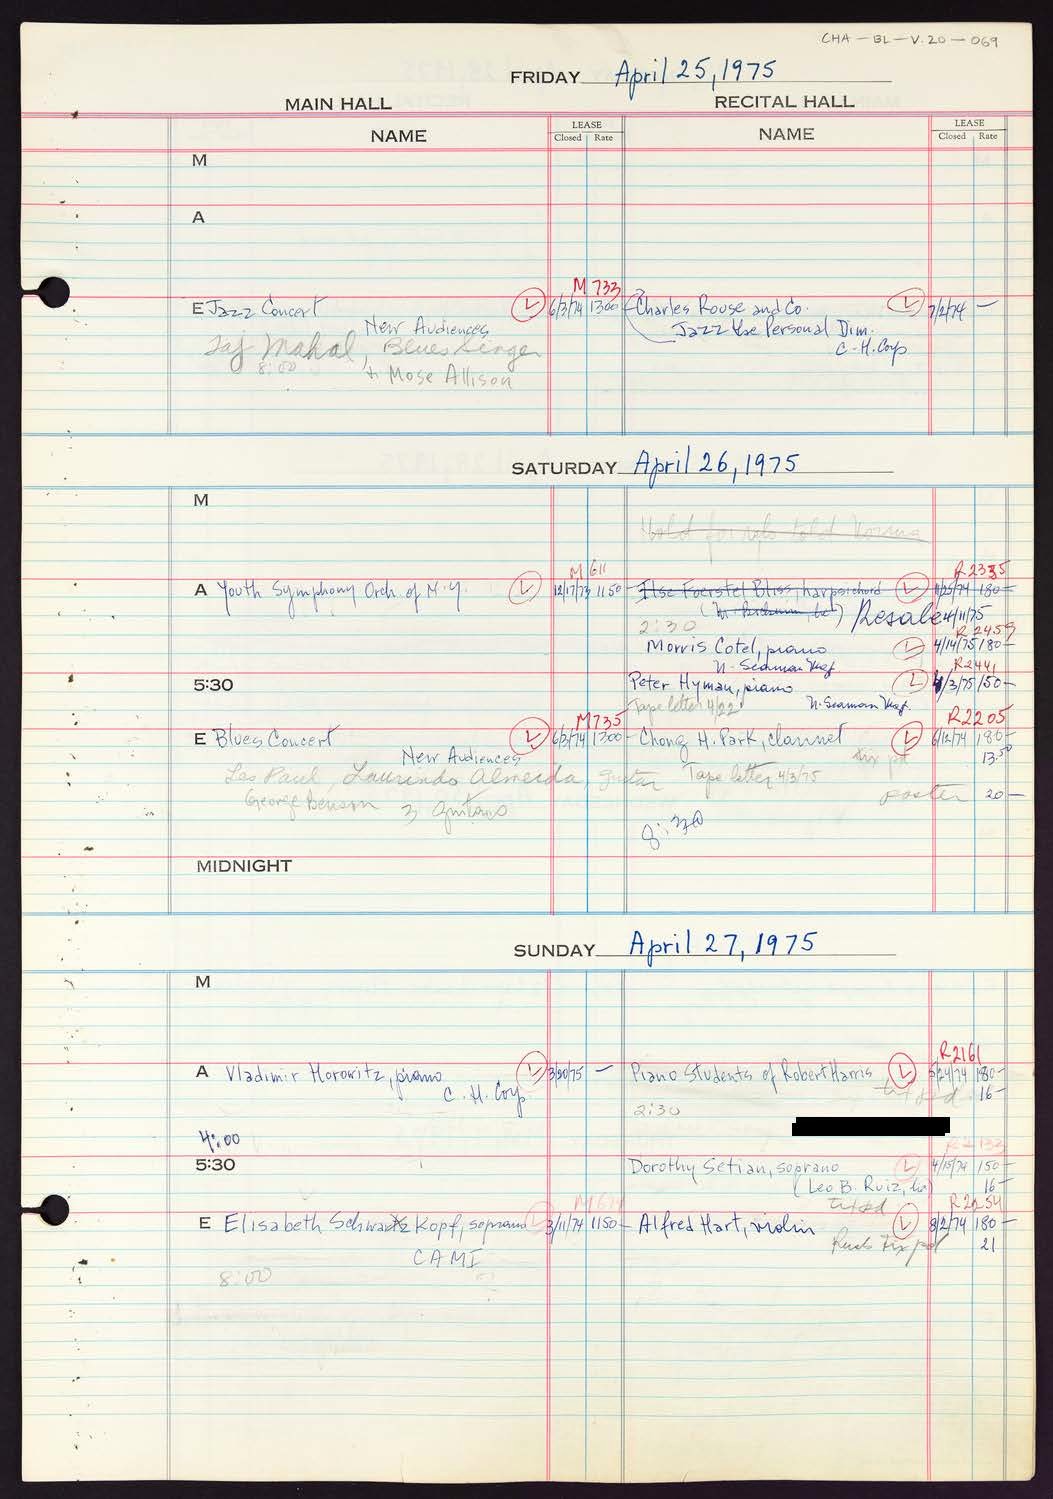 CHA-BL-V.20-069
FRIDAY April 25, 1975
MAIN HALL RECITAL HALL
NAME LEASE Closed Rate NAME LEASE Closed Rate
M
A
M 733
E Jazz Concert L 6/3/74 1300- Charles Rouse and Co. L 7/2/74 —
New Audiences Jazz the Personal Dim.
Taj Mahal, Blues Singer C-H. Corp
8:00 + Mose Allison
SATURDAY April 26, 1975
M
Hold for told Norma
M 611 R2335
A Youth Symphony Orch. of N.Y. L 12/17/73 1150- Ilse Foerstel Bliss, harpsichord L 11/25/74 180-
Resale 4/11/75
2:30 R2459
Morris Cotel, piano L 4/14/75 180-
N. Seaman Mgt R2441
5:30 Peter Hyman, piano L 4/3/75 150-
Tape letter 4/22 N. Seaman Mgt.
M735 R2205
E Blues Concert L 6/3/74 1300- Chong H. Park, clarinet L 6/12/74 180-
New Audiences tix pd 13.50
Les Paul, Laurindo Almeida, guitar Tape letter 4/3/75
George Benson 3 guitars poster 20-
8:30
MIDNIGHT
SUNDAY April 27, 1975
M
R2161
A Vladimir Horowitz, piano L 3/20/75 — Piano Students of Robert Harris L 5/24/74 180-
C.H. Corp. tix pd 16-
2:30
4:00
R2133
5:30 Dorothy Setian, soprano L 4/15/74 150-
(Leo B. Ruiz, ) 16-
M614 tix pd R2254
E Elisabeth Schwarzkopf, soprano L 3/11/74 1150- Alfred Hart, violin L 8/2/74 180-
CAMI tix pd 21
8:00